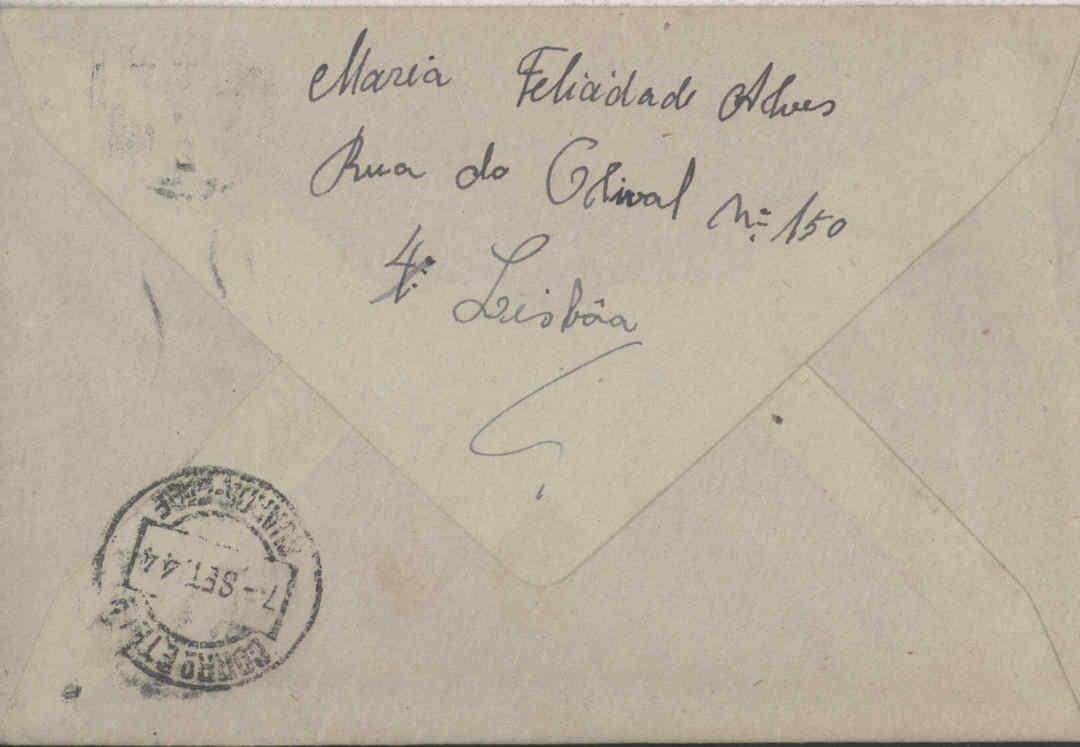 Maria Felicidade Alves
Rua do Olival Nº 150
4º Lisbôa
7-SET.44